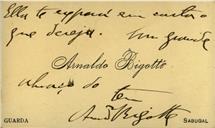 Ella te exporá em carta o
que deseja. Um grande
Arnaldo Bigotte
abraço do teu
Arnd. Bigotte
GUARDA SABUGAL